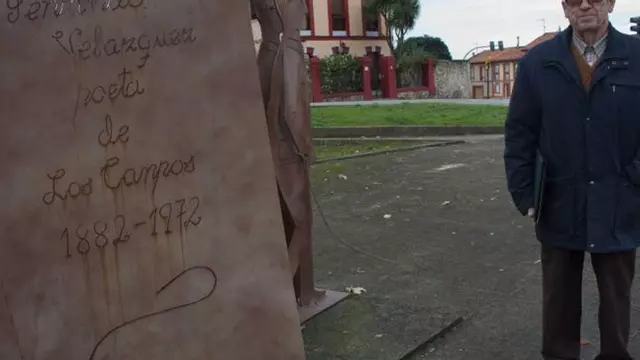 Velazquez
poeta
de
Los Campos
1882-1972